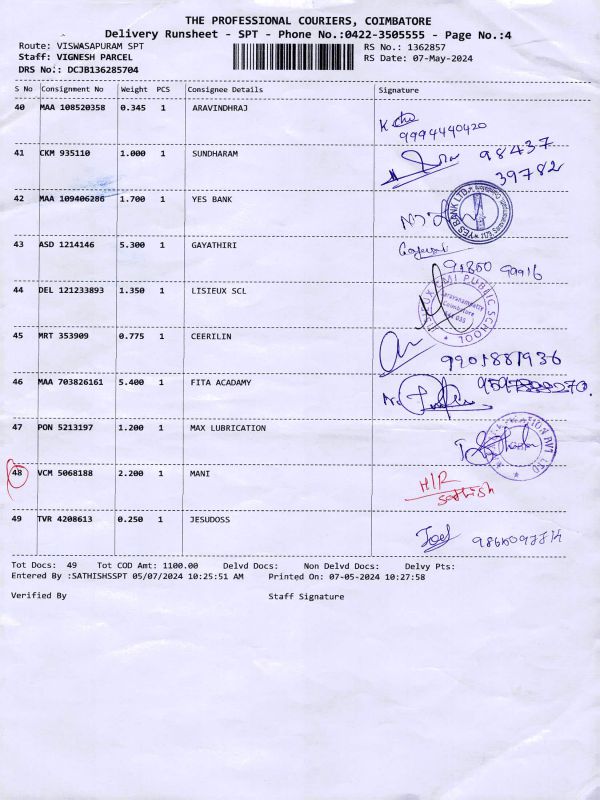 THE PROFESSIONAL COURIERS, COIMBATORE
Delivery Runsheet - SPT - Phone No.:0422-3505555 - Page No.:4
Route: VISWASAPURAM SPT RS No.: 1362857
Staff: VIGNESH PARCEL RS Date: 07-May-2024
DRS No.: DCJB136285704
S No Consignment No Weight PCS Consignee Details Signature
40 MAA 108520358 0.345 1 ARAVINDHRAJ
9994440420
41 CKM 935110 1.000 1 SUNDHARAM
98437
39782
42 MAA 109406286 1.700 1 YES BANK
YES BANK LTD
43 ASD 1214146 5.300 1 GAYATHIRI
99916
44 DEL 121233893 1.350 1 LISIEUX SCL
PUBLIC SCHOOL
Saravanampatty
Coimbatore
45 MRT 353909 0.775 1 CEERILIN
9901881936
46 MAA 703826161 5.400 1 FITA ACADAMY
47 PON 5213197 1.200 1 MAX LUBRICATION
PVT. LTD
48 VCM 5068188 2.200 1 MANI
H/R
Sathish
49 TVR 4208613 0.250 1 JESUDOSS
Joel
Tot Docs: 49 Tot COD Amt: 1100.00 Delvd Docs: Non Delvd Docs: Delvy Pts:
Entered By :SATHISHSSPT 05/07/2024 10:25:51 AM Printed On: 07-05-2024 10:27:58
Verified By Staff Signature